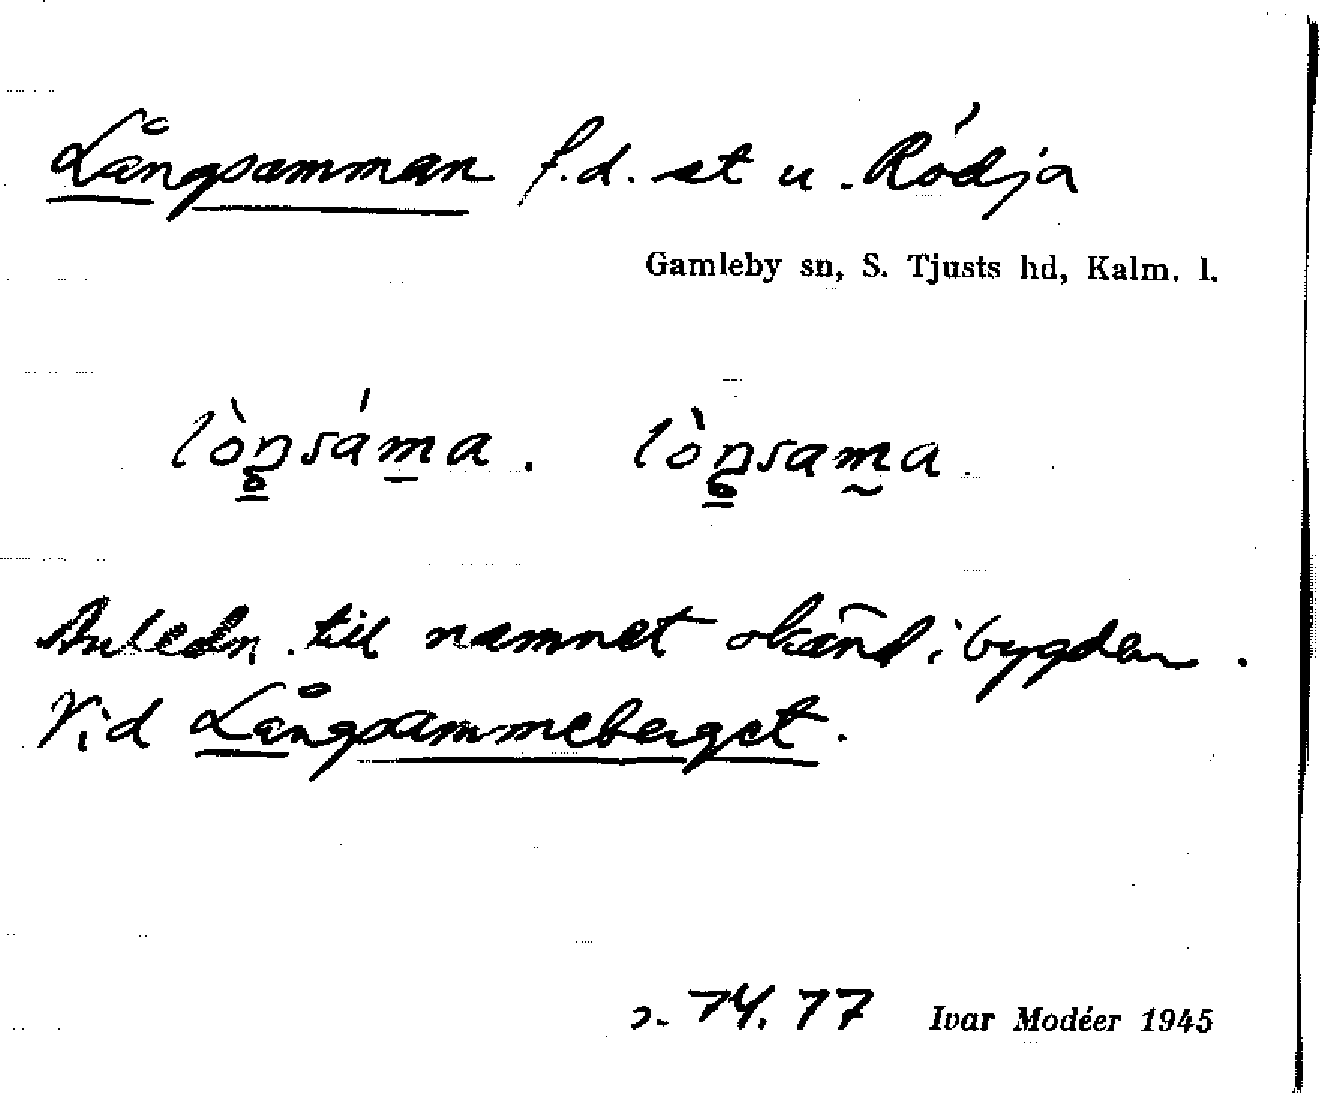 Långsamman f.d. st u. Rödja
Gamleby sn, S. Tjusts hd, Kalm. l.
lòŋsáma. lòŋsama.
Anledn. till namnet okänd i bygden.
Vid Långsammeberget.
s. 74. 77 Ivar Modéer 1945